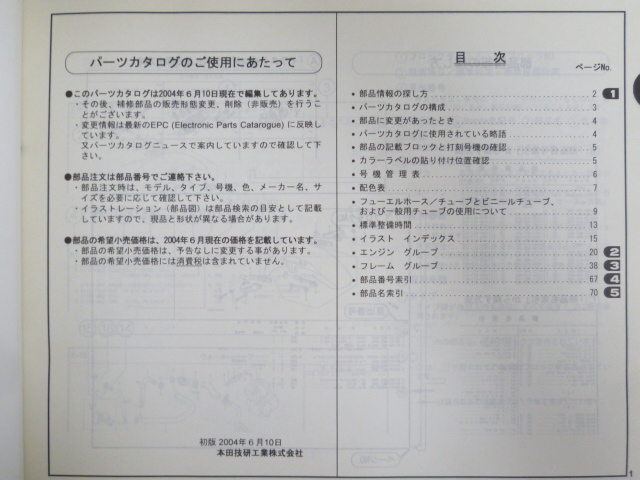 パーツカタログのご使用にあたって
●このパーツカタログは2004年6月10日現在で編集してあります。
・その後、補修部品の販売形態変更、削除（非販売）を行うこ
とがございます。
・変更情報は最新のEPC (Electronic Parts Catarogue) に反映し
ています。
又パーツカタログニュースで案内していますので確認して下
さい。
●部品注文は部品番号でご連絡下さい。
・部品注文時は、モデル、タイプ、号機、色、メーカー名、サ
イズを必要に応じて確認して下さい。
・イラストレーション（部品図）は部品検索の目安として記載
していますので、現品と形状が異なる場合があります。
●部品の希望小売価格は、2004年6月現在の価格を記載しています。
・部品の希望小売価格は、予告なしに変更する事があります。
・部品の希望小売価格には消費税は含まれていません。
初版 2004年6月10日
本田技研工業株式会社
目 次
ページNo.
• 部品情報の探し方 2 1
• パーツカタログの構成 3
• 部品に変更があったとき 4
• パーツカタログに使用されている略語 4
• 部品の記載ブロックと打刻号機の確認 5
• カラーラベルの貼り付け位置確認 5
• 号機管理表 6
• 配色表 7
• フューエルホース／チューブとビニールチューブ、
および一般用チューブの使用について 9
• 標準整備時間 13
• イラスト インデックス 15
• エンジン グループ 20 2
• フレーム グループ 38 3
• 部品番号索引 67 4
• 部品名索引 70 5
1